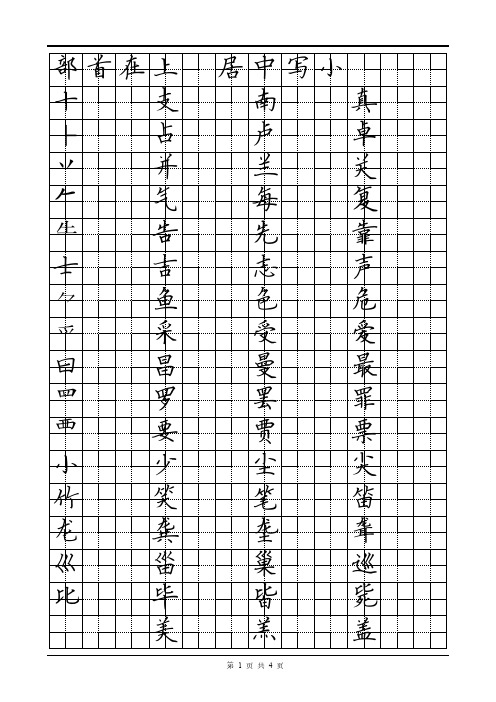 部首在上 居中写小
十 支 南 真
卜 占 卢 卓
丷 并 兰 关
𠂉 气 每 复
告 先 靠
士 吉 志 声
⺈ 鱼 色 危
爫 采 受 爱
曰 昌 曼 最
罒 罗 罢 罪
覀 要 贾 票
小 少 尘 尖
竹 笑 笔 笛
龙 龚 垄 聋
巛 甾 巢 巡
比 毕 皆 毙
美 羔 盖
第 1 页 共 4 页